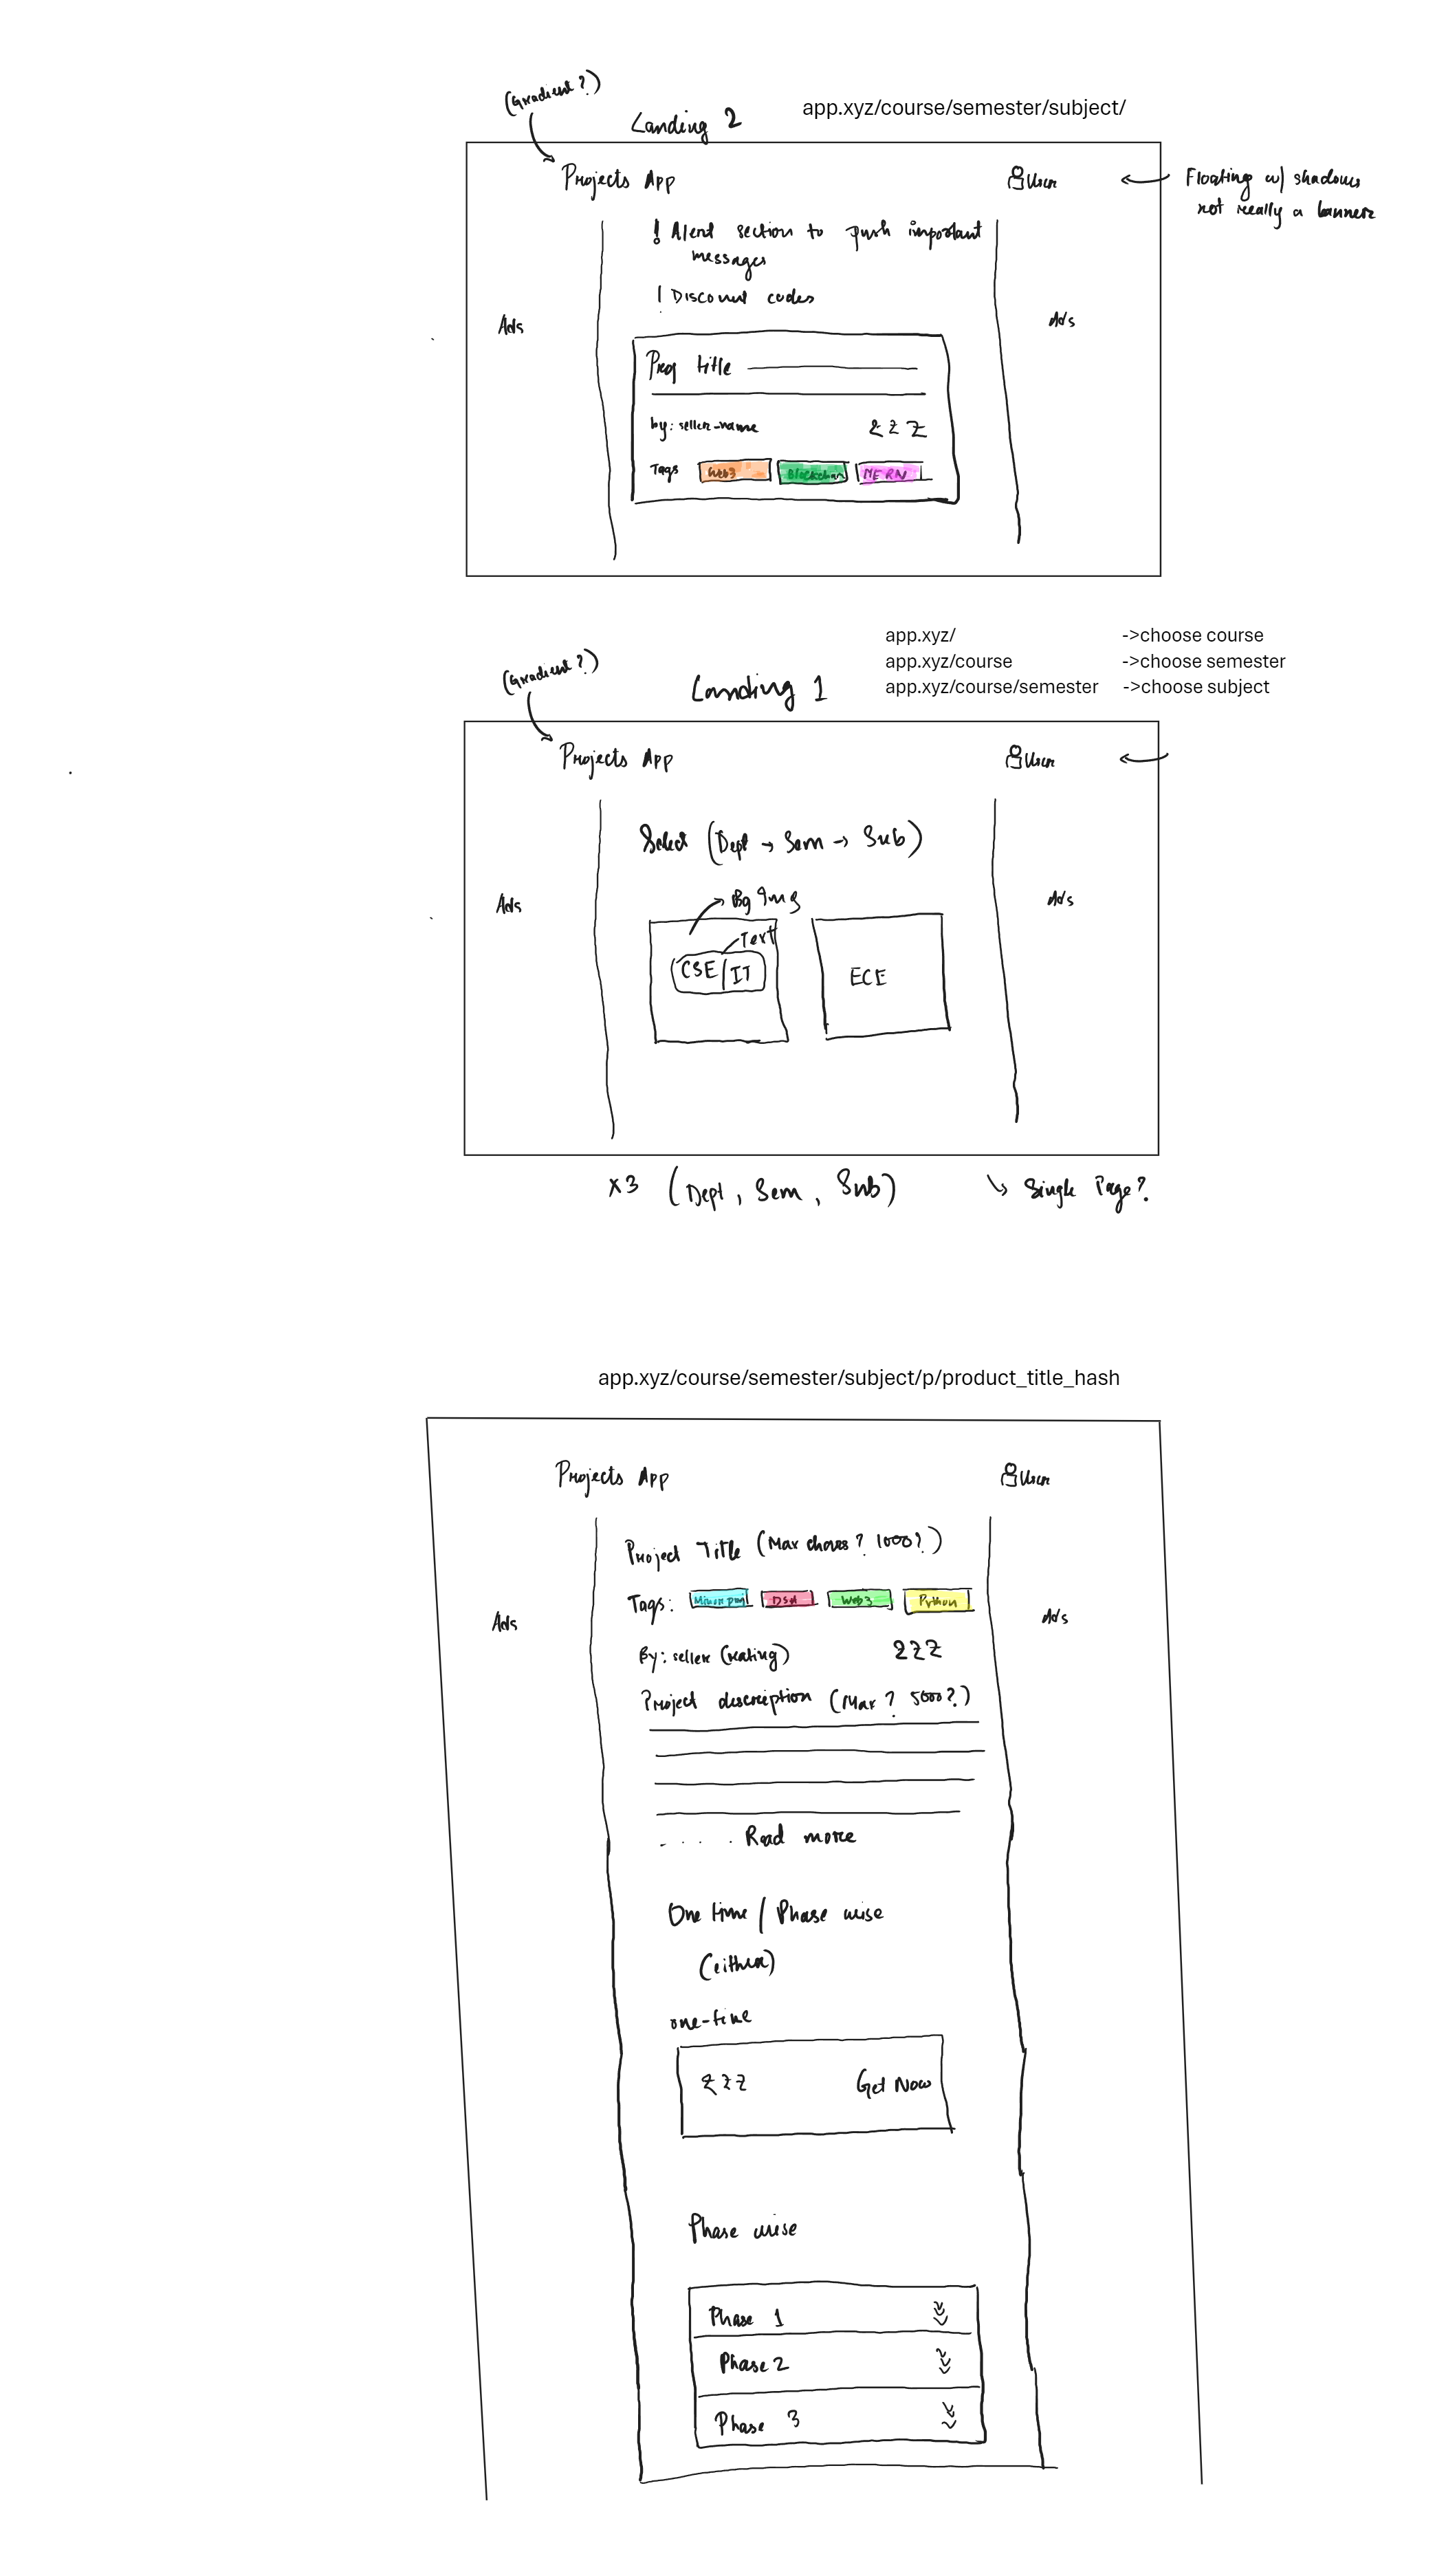 (Gradient?)
Landing 2
app.xyz/course/semester/subject/
Projects App
User
Floating w/ shadows
not really a banner
! Alert section to push important
messages
! Discount codes
Ads
Ads
Proj title
by: seller-name
₹ZZZ
Tags Web3 Blockchain MERN
app.xyz/ ->choose course
app.xyz/course ->choose semester
app.xyz/course/semester ->choose subject
(Gradient?)
Landing 1
Projects App
User
Select (Dept → Sem → Sub)
Ads
Ads
Bg Img
Text
CSE/IT
ECE
x3 (Dept, Sem, Sub)
Single Page?
app.xyz/course/semester/subject/p/product_title_hash
Projects App
User
Project Title (Max chars? 1000?)
Tags: Minor proj DSA Web3 Python
Ads
Ads
By: seller (rating)
ZZZ
Project description (Max? 5000?)
.... Read more
One time / Phase wise
(either)
one-time
ZZZ Get Now
Phase wise
Phase 1
Phase 2
Phase 3